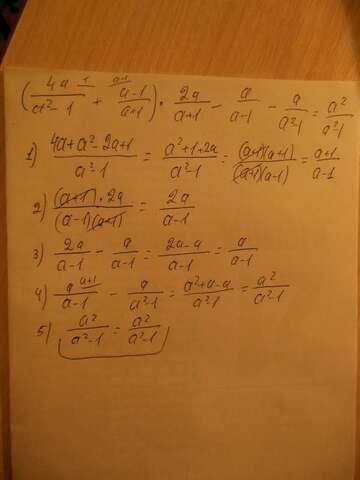 (4a/(a²-1) ¹ + (a-1)/(a+1) ᵃ⁻¹) · 2a/(a+1) - a/(a-1) - a/(a²-1) = a²/(a²-1)
1) (4a+a²-2a+1)/(a²-1) = (a²+1+2a)/(a²-1) = (a+1)(a+1)/(a+1)(a-1) = (a+1)/(a-1)
2) (a+1)·2a/(a-1)(a+1) = 2a/(a-1)
3) 2a/(a-1) - a/(a-1) = (2a-a)/(a-1) = a/(a-1)
4) a/(a-1) ᵃ⁺¹ - a/(a²-1) = (a²+a-a)/(a²-1) = a²/(a²-1)
5) a²/(a²-1) = a²/(a²-1)